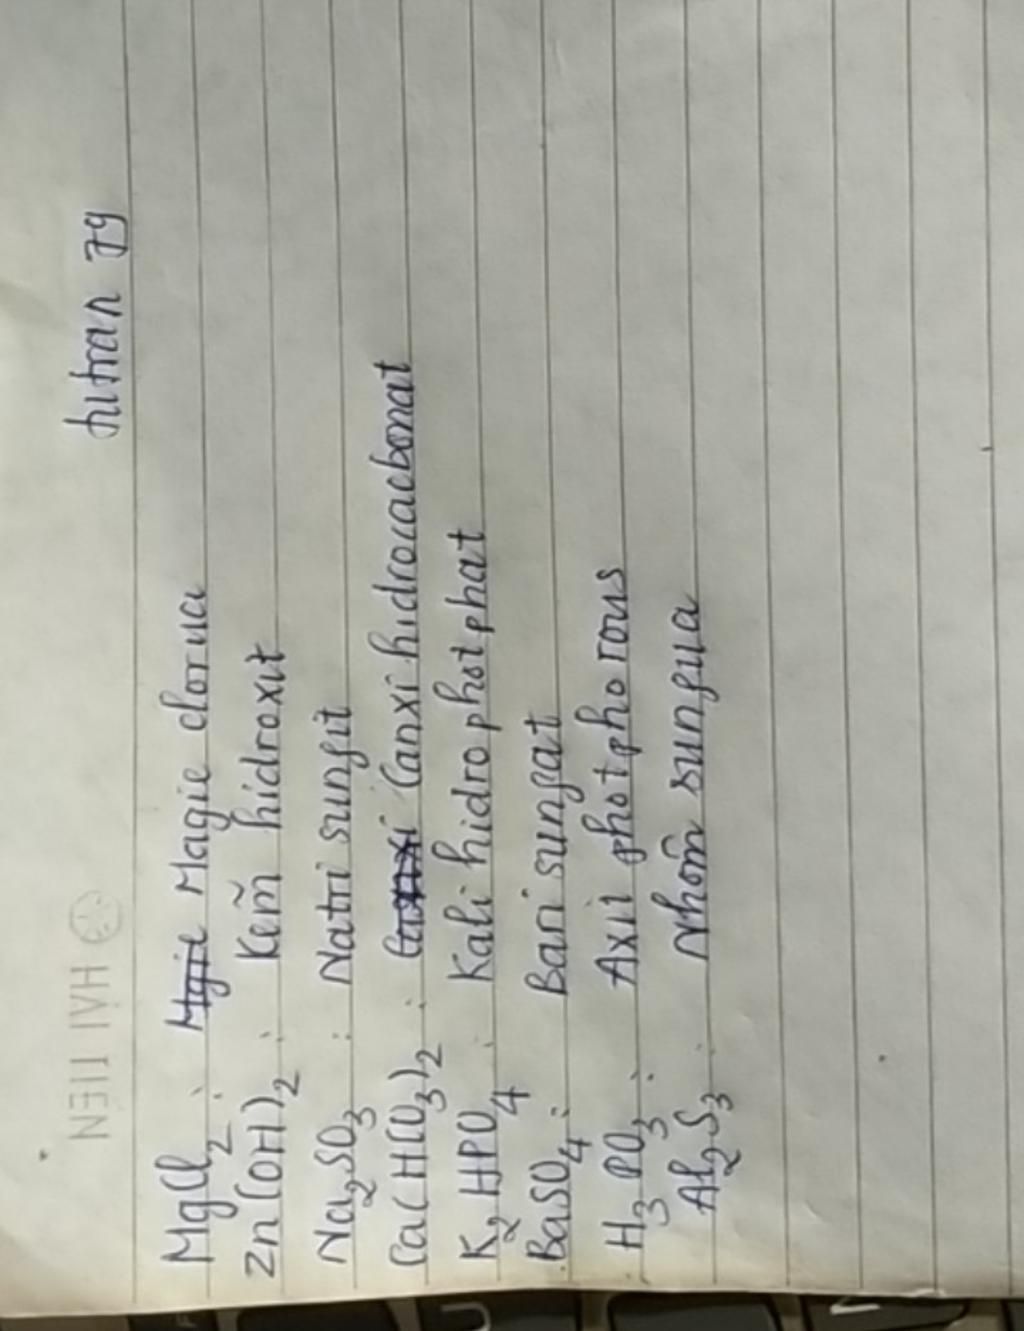 HẢI TIẾN
hitran 79
MgCl2 : Mgie Magie clorua
Zn(OH)2 : Kẽm hidroxit
Na2SO3 : Natri sunfit
Ca(HCO3)2 : Canxi Canxi hidrocacbonat
K2HPO4 : Kali hidrophotphat
BaSO4 : Bari sunfat
H3PO3 : Axit photphorous
Al2S3 : Nhôm sunfua